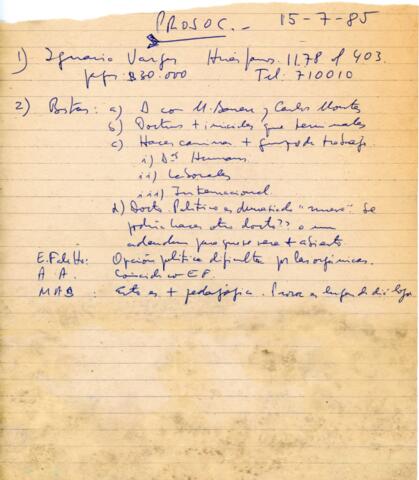 PROSOC.- 15-7-85
1) Ignacio Vargas Huérfanos 1178 of 403.
$30.000 Tel: 710010
2) Bostas: a) D con M. y Carlos Montes
b) Doctrus + iniciales que terminales
c) Hacer caminar + grupo de trabajo
i) Ds Humanos
ii) Laborales
iii) Internacional
d) Docto. Político es demasiado "nuevo". Se
podría hacer otro docto?? o un
adendum para que se vea + abierto
E. Faletto: Opción política dificulta por las orgánicas.
A.A. Coincide con E.F.
MAB: Esto es + pedagógico. Prosoc es lugar de diálogo